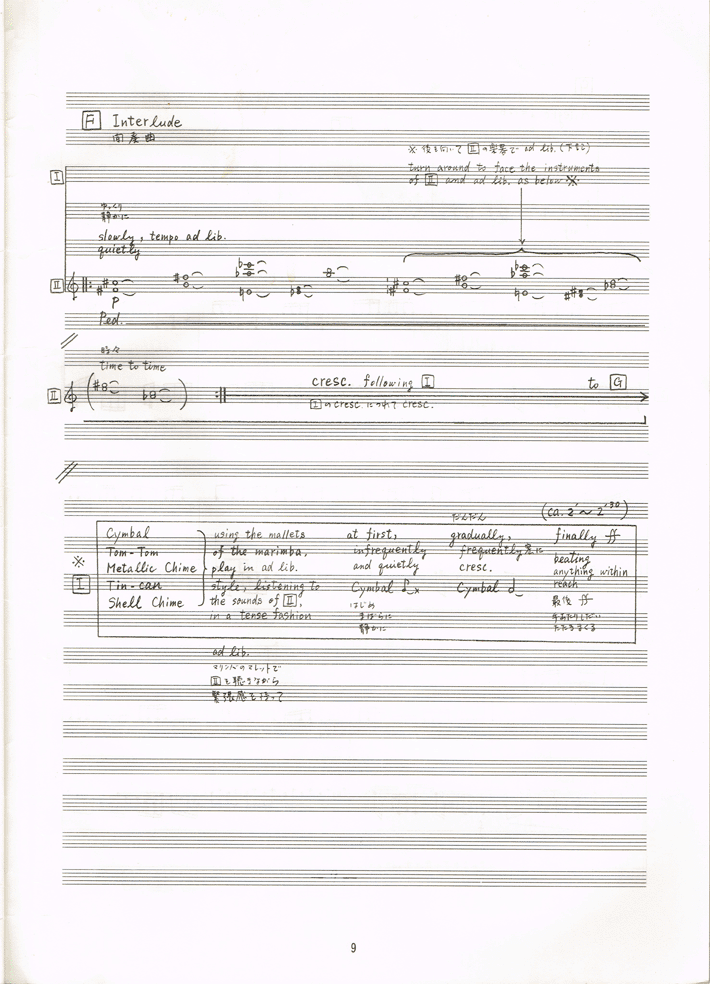 F Interlude
間奏曲
※ 後を向いて II の楽器で ad lib. (下参)
turn around to face the instruments
of II and ad lib. as below ※
I
ゆっくり
静かに
slowly, tempo ad lib.
quietly
II
P
Ped.
時々
time to time
II
cresc. following I to G
I のcresc.につれて cresc.
だんだん
(ca. 2' ~ 2'30)
※ I
Cymbal
Tom-Tom
Metallic Chime
Tin-can
Shell Chime
using the mallets
of the marimba,
play in ad lib.
style, listening to
the sounds of II,
in a tense fashion
at first,
infrequently
and quietly
Cymbal
はじめ
まばらに
静かに
gradually,
frequently 急に
cresc.
Cymbal
finally ff
beating
anything within
reach
最後 ff
手あたりしだい
たたきまくる
ad lib.
マリンバのマレットで
II を聴きながら
緊張感を持って
9